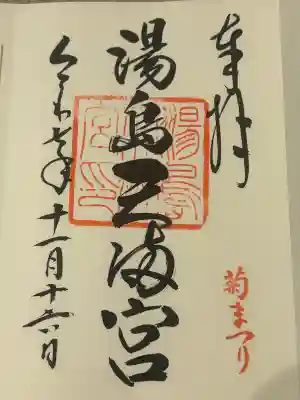 奉拝
湯島天満宮
令和七年十一月十六日
菊まつり